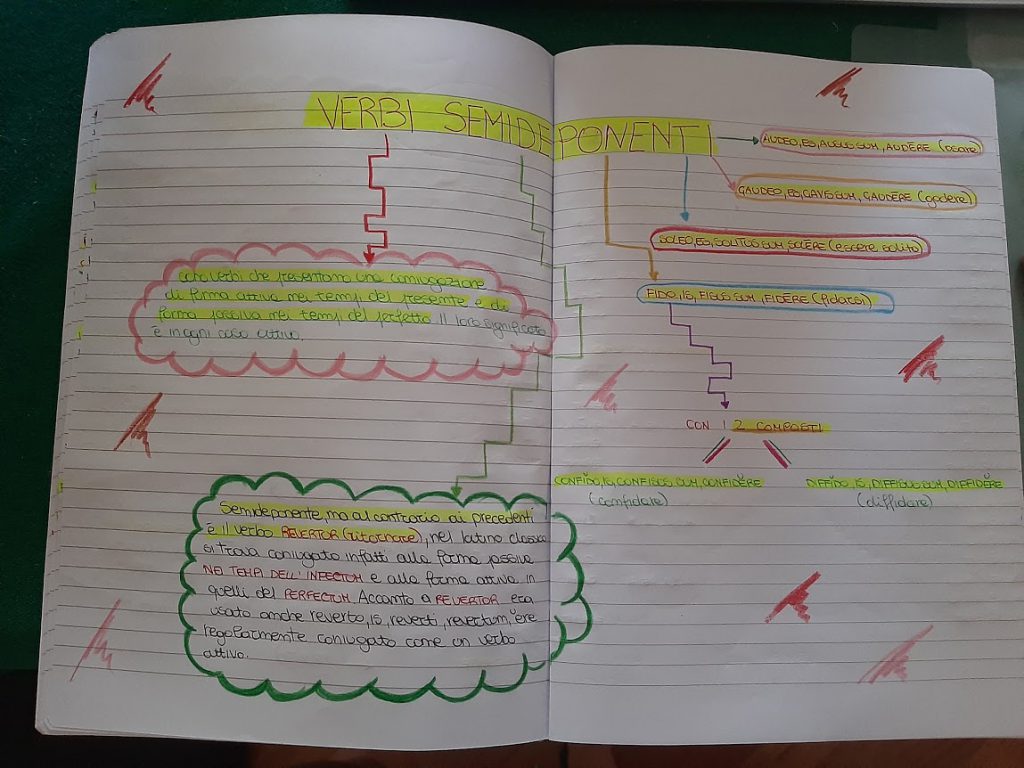 VERBI SEMIDEPONENTI
AUDEO, ES, AUSUS SUM, AUDĒRE (osare)
GAUDEO, ES, GAVISUS SUM, GAUDĒRE (godere)
SOLEO, ES, SOLITUS SUM, SOLĒRE (essere solito)
FIDO, IS, FISUS SUM, FIDĔRE (fidarsi)
sono verbi che presentano una coniugazione
di forma attiva nei tempi del presente e di
forma passiva nei tempi del perfetto. Il loro significato
è in ogni caso attivo.
CON I 2 COMPOSTI
CONFIDO, IS, CONFISUS SUM, CONFIDĔRE
(confidare)
DIFFIDO, IS, DIFFISUS SUM, DIFFIDĔRE
(diffidare)
Semideponente, ma al contrario ai precedenti
è il verbo REVERTOR (ritornare), nel latino classico
si trova coniugato infatti alla forma passiva
NEI TEMPI DELL'INFECTUM e alla forma attiva in
quelli del PERFECTUM. Accanto a REVERTOR era
usato anche reverto, is, reverti, revertum, ĕre
regolarmente coniugato come un verbo
attivo.